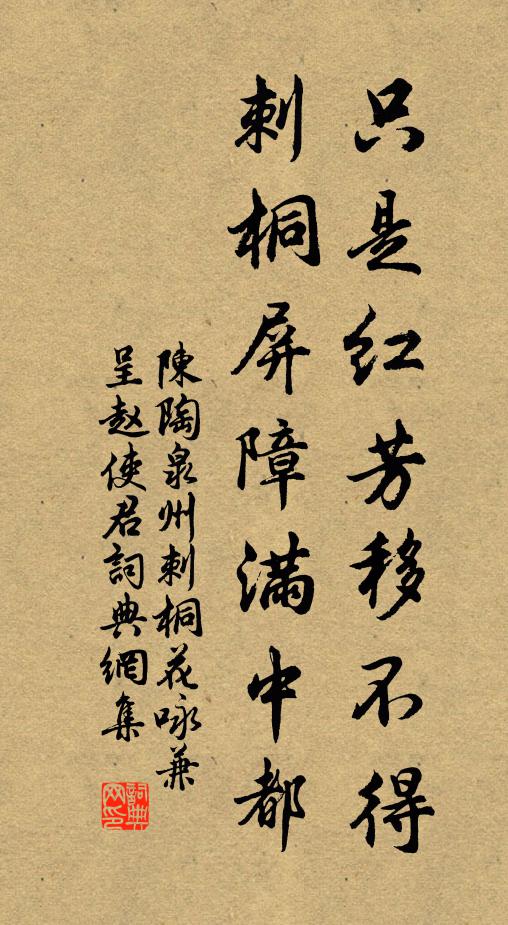 只是红芳移不得
刺桐屏障满中都
陳陶泉州刺桐花咏兼
呈赵使君詞典網集
詞典网印